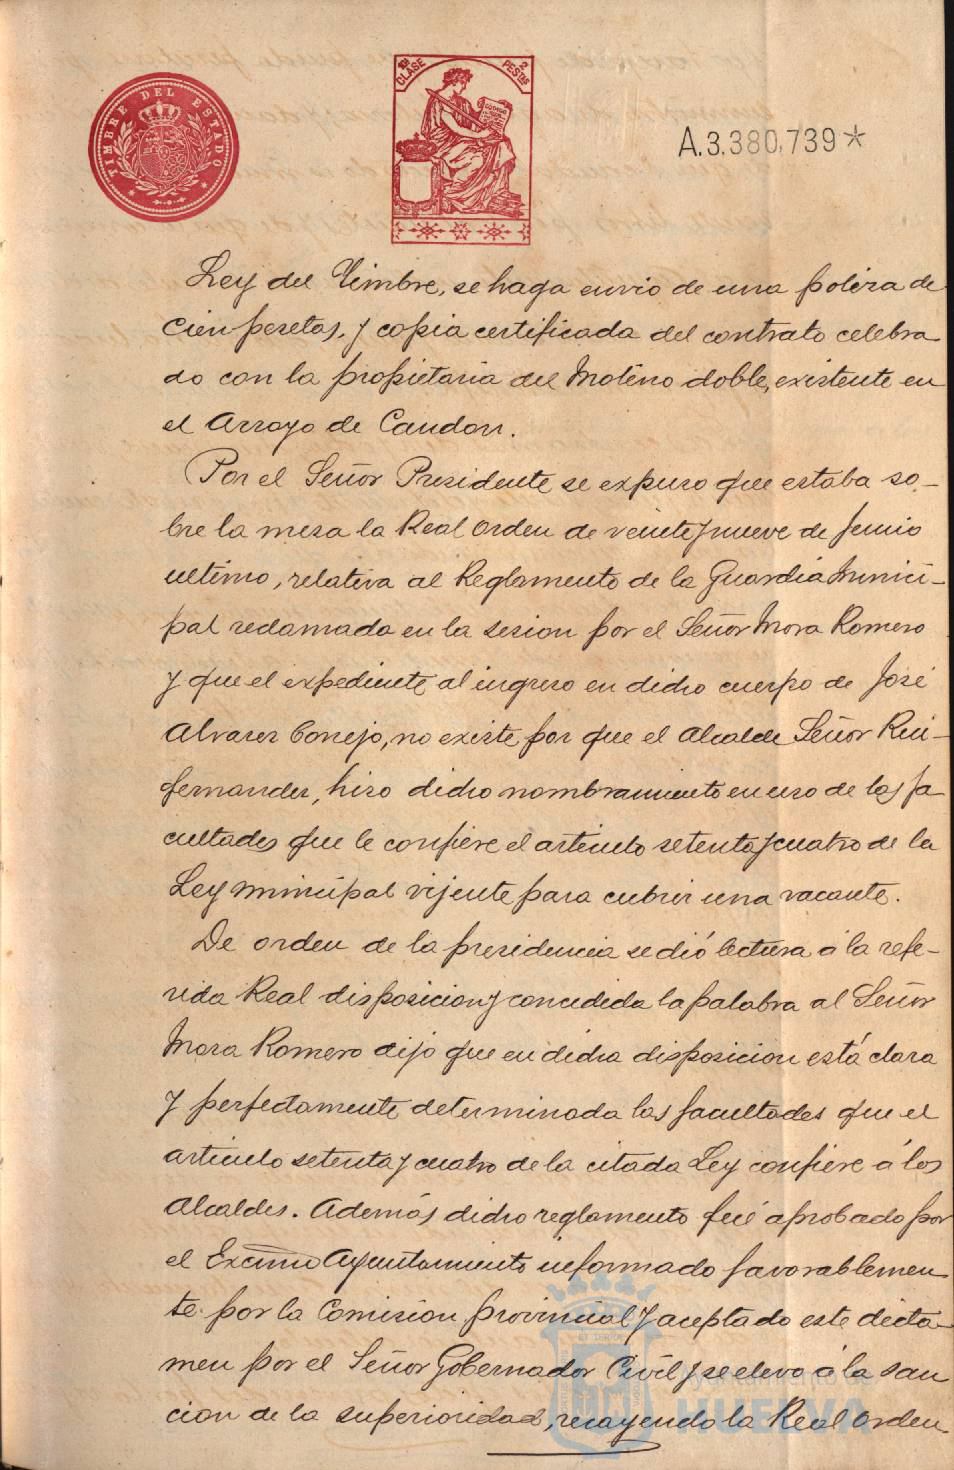 TIMBRE DEL ESTADO
10ª CLASE 2 PESTAS
A.3.380,739*
Ley del Timbre, se haga envio de una poliza de
cien pesetas, y copia certificada del contrato celebra
do con la propietaria del Molino doble, existente en
el Arroyo de Candon.
Por el Señor Presidente se expuso que estaba so-
bre la mesa la Real orden de veinte y nueve de Junio
ultimo, relativa al Reglamento de la Guardia Munici-
pal reclamada en la sesion por el Señor Mora Romero
y que el expediente al ingreso en dicho cuerpo de José
Alvarez Conejo, no existe por que el Alcalde Señor Rui-
fernandez, hizo dicho nombramiento en uso de las fa
cultades que le confiere el articulo setenta y cuatro de la
Ley municipal vijente para cubrir una vacante.
De orden de la presidencia se dió lectura á la refe-
rida Real disposicion y concedida la palabra al Señor
Mora Romero dijo que en dicha disposicion está clara
y perfectamente determinada las facultades que el
articulo setenta y cuatro de la citada Ley confiere á los
Alcaldes. Además dicho reglamento fué aprobado por
el Excmo Ayuntamiento informado favorablemen
te por la Comision provincial y aceptado este dicta-
men por el Señor Gobernador Civil y se elevo á la san
cion de la superioridad, recayendo la Real Orden
Ayuntamiento de
HUELVA